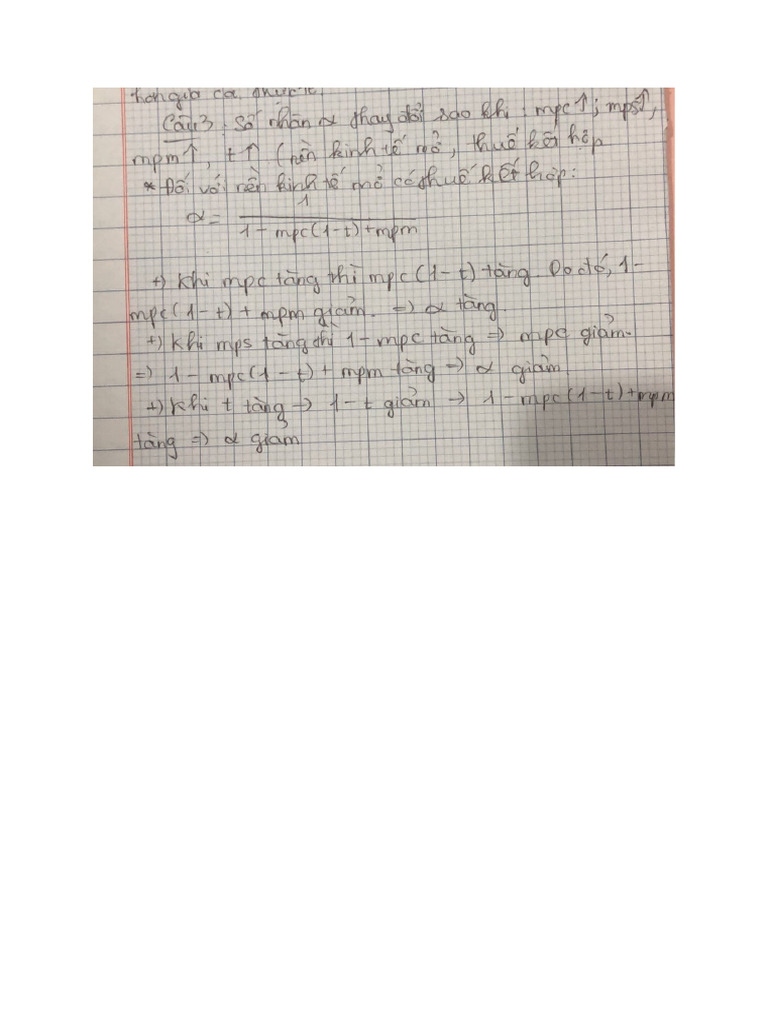 Câu 3 : Số nhân α thay đổi sao khi : mpc↑ ; mps↑,
mpm↑, t↑ (nền kinh tế mở, thuế kết hợp
* Đối với nền kinh tế mở có thuế kết hợp:
α = 1 / 1 - mpc(1-t)+mpm
+) Khi mpc tăng thì mpc(1-t) tăng. Do đó, 1-
mpc(1-t) + mpm giảm. => α tăng.
+) Khi mps tăng thì 1-mpc tăng => mpc giảm.
=> 1 - mpc(1-t) + mpm tăng => α giảm
+) Khi t tăng -> 1-t giảm -> 1-mpc(1-t)+mpm
tăng => α giảm